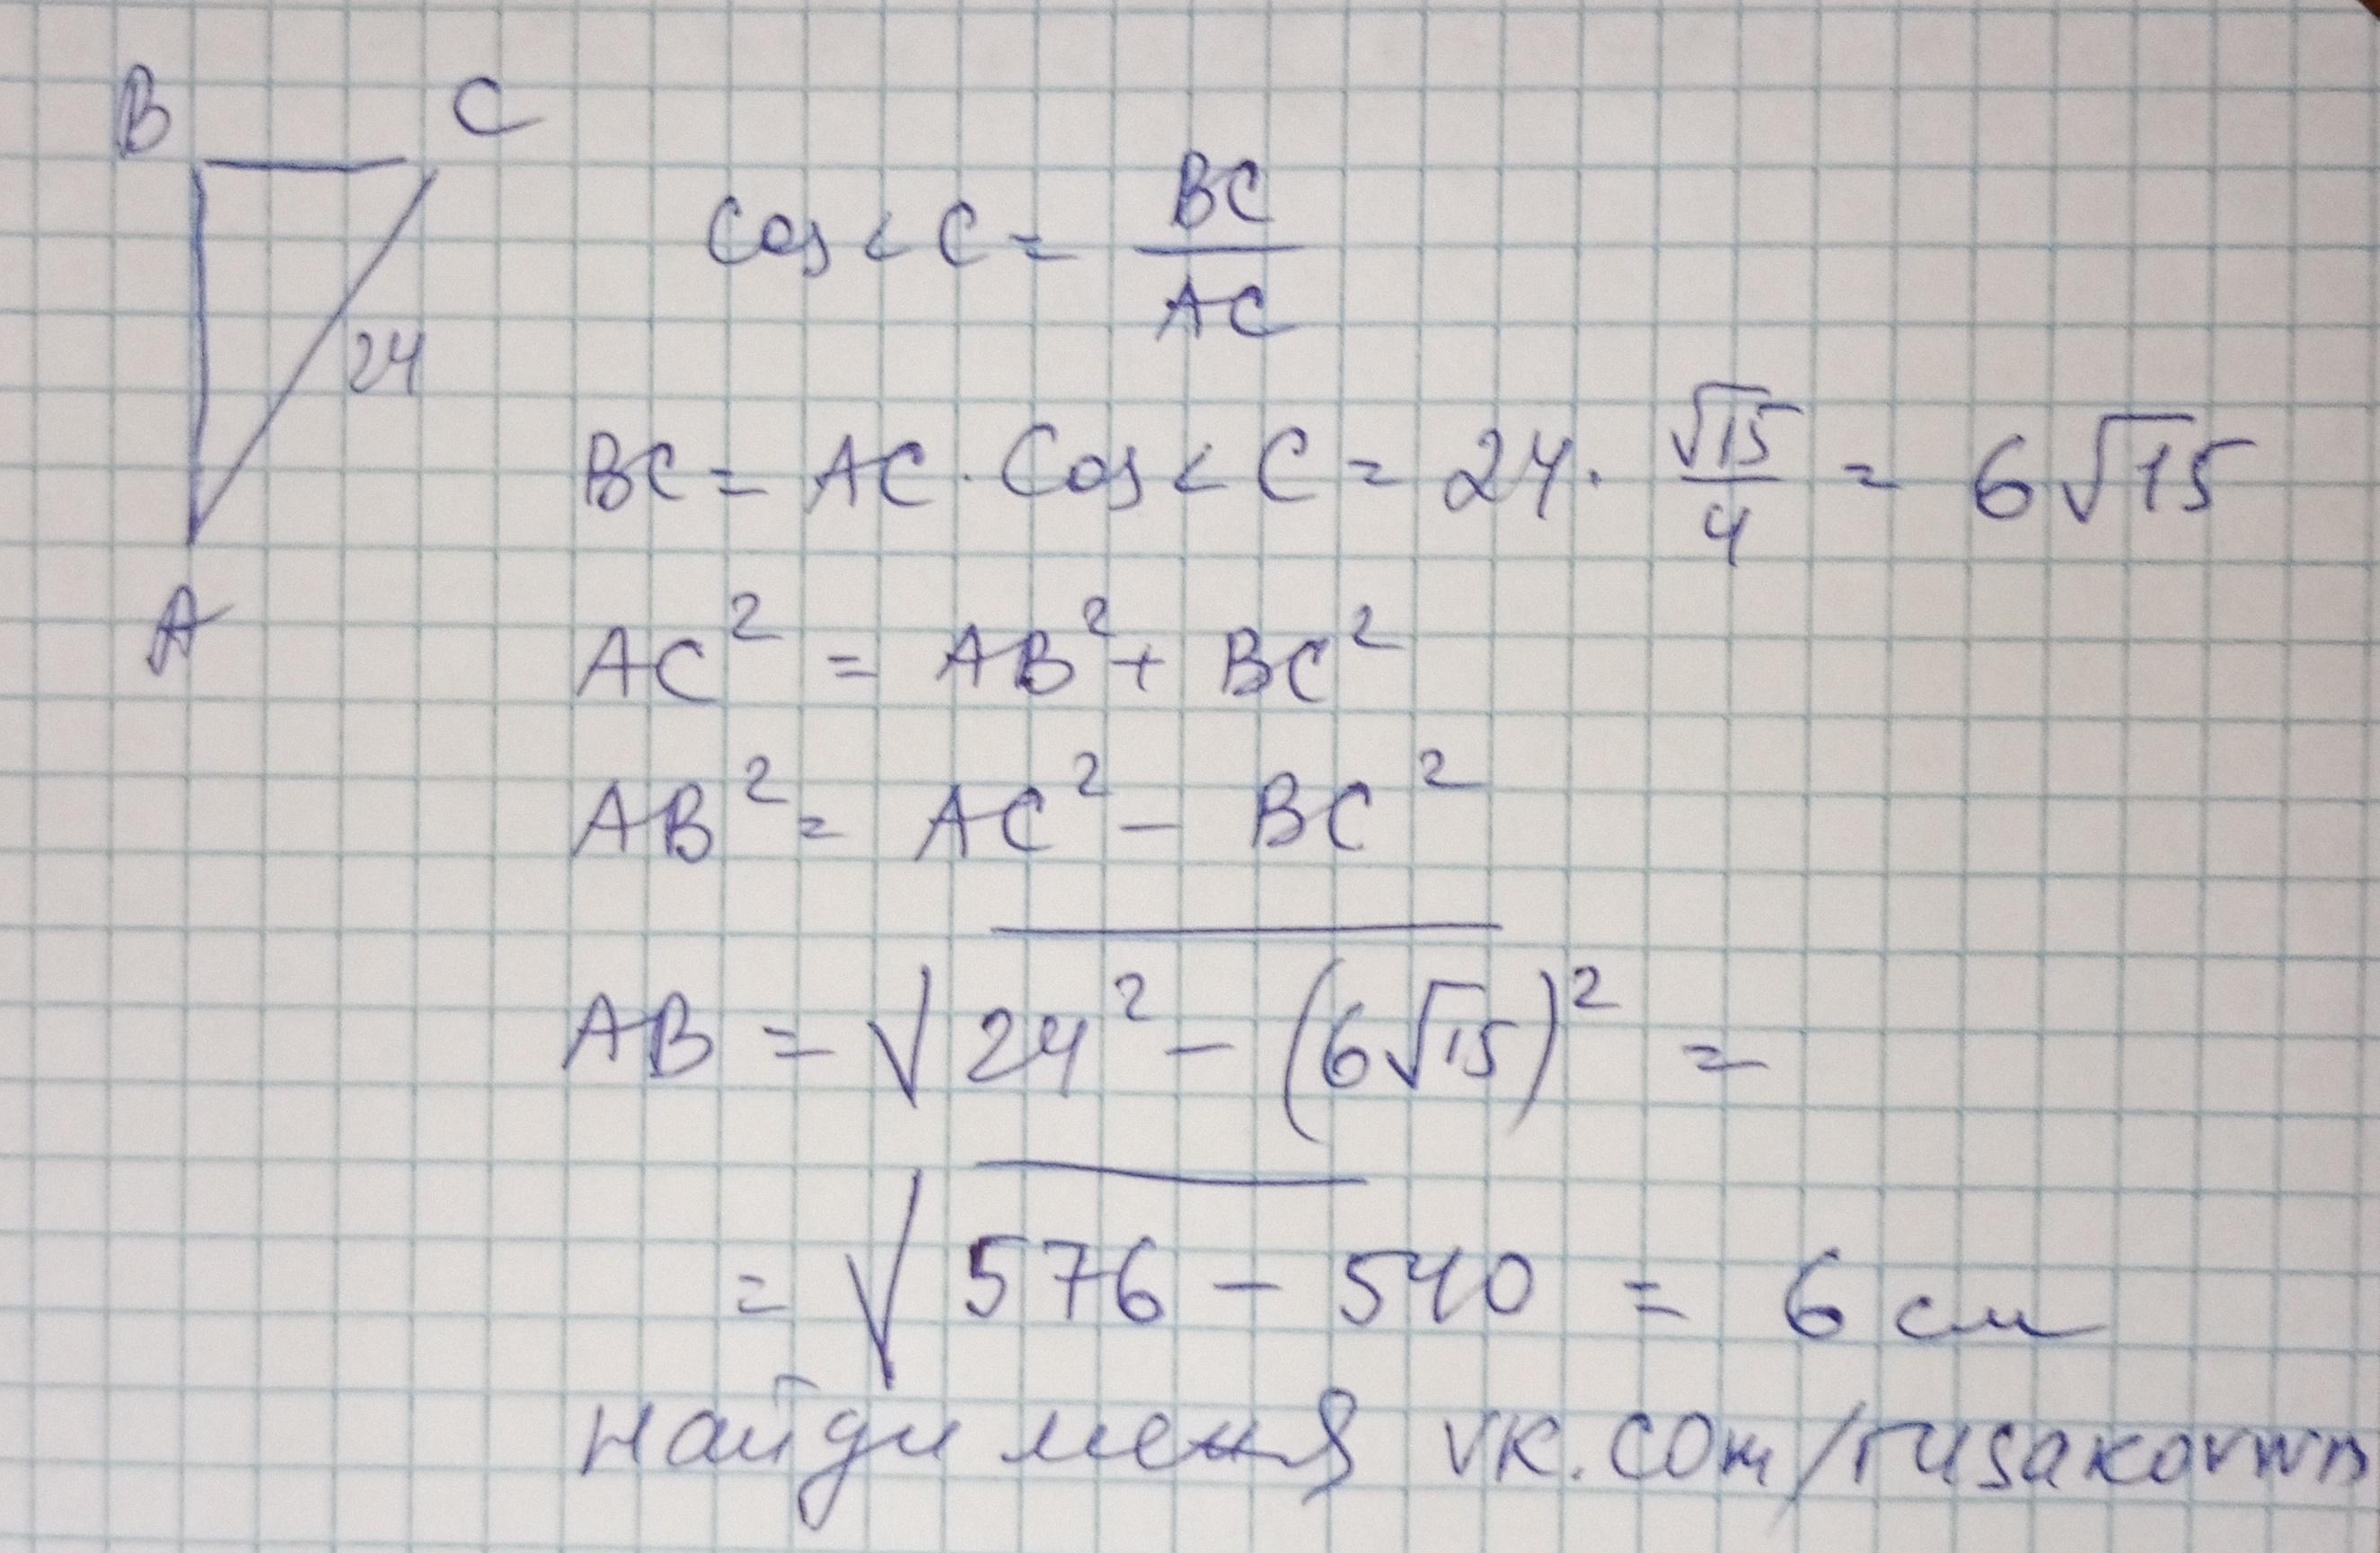 B C
24
A
Cos < C = BC / AC
BC = AC · Cos < C = 24 · √15 / 4 = 6√15
AC² = AB² + BC²
AB² = AC² − BC²
AB = √24² − (6√15)² =
= √576 − 540 = 6 см
найди меня vk.com/rusakovwm